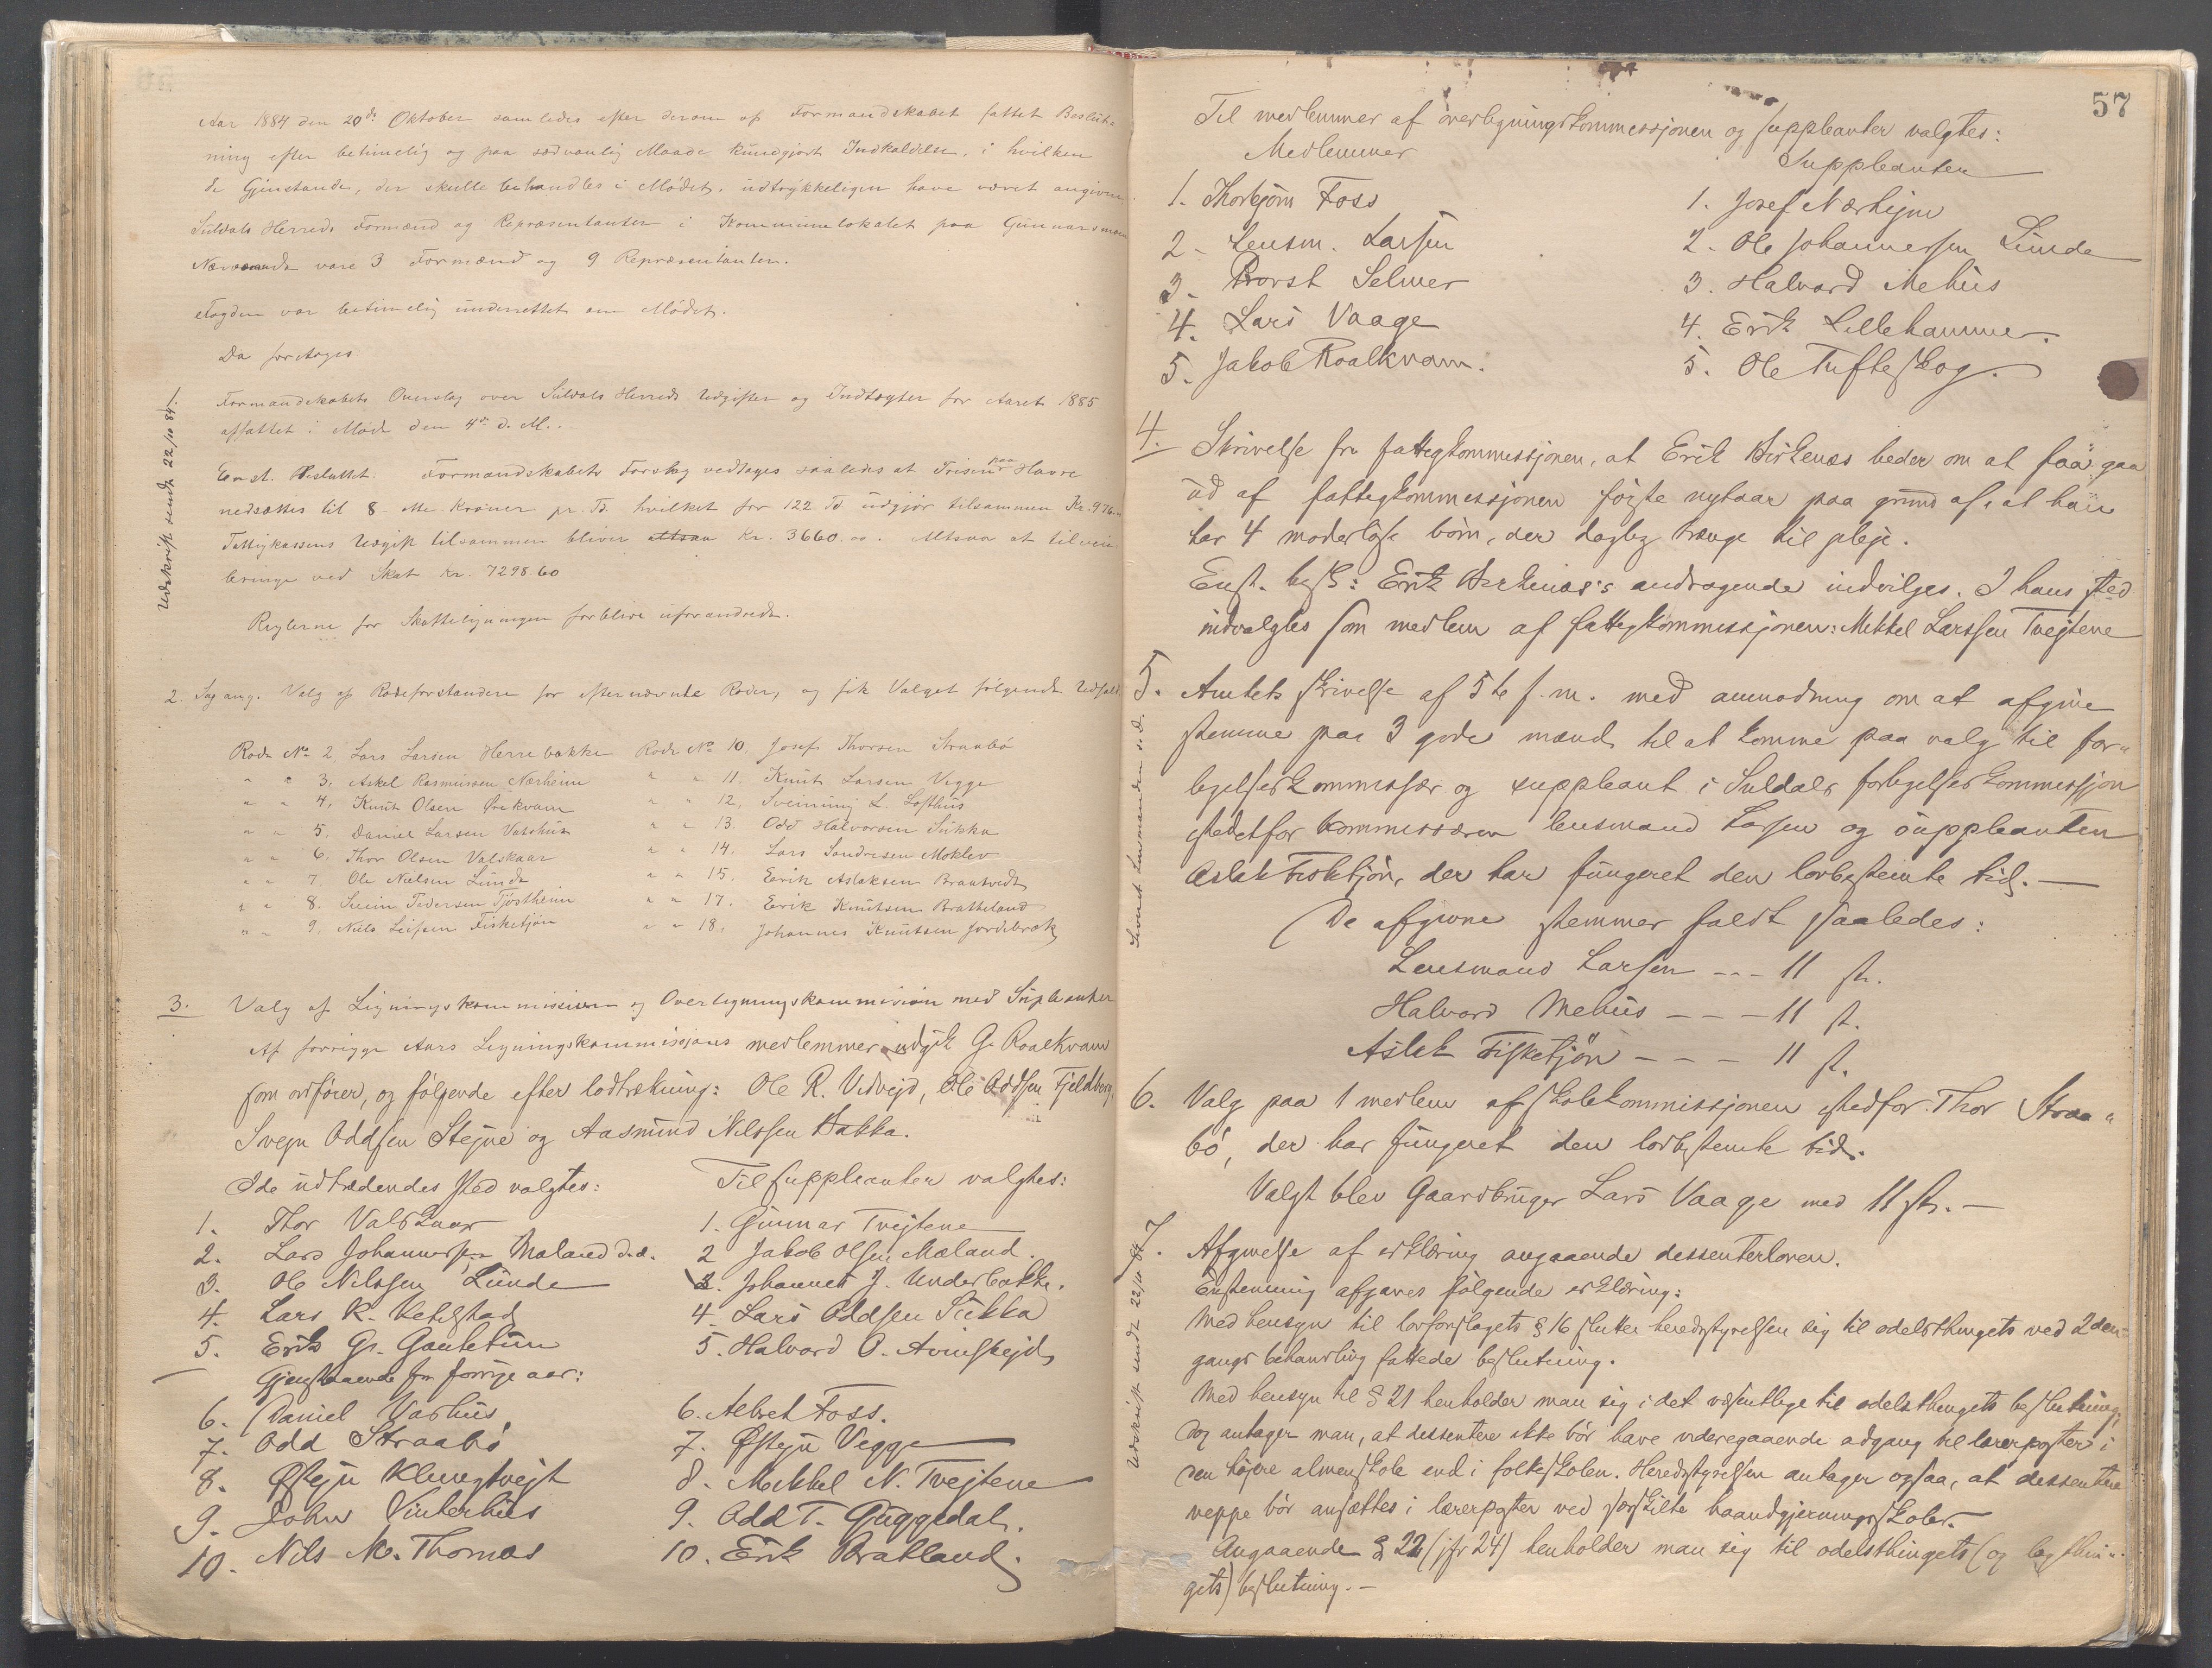 Aar 1884 den 20de Oktober samledes efter derom af Formandskabet fattet Beslut-
ning efter betimelig og paa sædvanlig Maade kundgjort Indkaldelse, i hvilken
de Gjenstande, der skulle behandles i Mødet, udtrykkeligen have været angivne
Suldals Herreds Formænd og Repræsentanter i Kommunelokalet paa Gunnarsmoen
Nærværende vare 3 Formænd og 9 Repræsentanter.
Fogden var betimelig underrettet om Mødet.
Da foretoges
1.
Formandskabets Overslag over Suldals Herreds Udgifter og Indtægter for Aaret 1885
affattet i Møde den 4de d. M..
Enst. Besluttet. Formandskabets Forslag vedtages saaledes at Prisen paa Havre
nedsættes til 8 - otte Kroner pr. Td. hvilket for 122 Td. udgjør tilsammen Kr. 976.
Fattigkassens Udgift tilsammen bliver altsaa Kr. 3660.00. Altsaa at tilveie-
bringe ved Skat Kr. 7298.60
Reglerne for Skatteligningen forblive uforandrede.
Udskrift sendt 22/10 84.
2. Sag ang. Valg af Rodeforstandere for efternævnte Roder, og fik Valget følgende Udfald
Rode No 2, Lars Larsen Herrebakke Rode No 10, Josef Thorsen Straabø
" " 3, Askel Rasmussen Nærheim " " 11. Knut Larsen Vegge
" " 4, Knut Olsen Ørekvam " " 12, Sveinung L. Lofthus
" " 5, Daniel Larsen Vatshus " " 13. Odd Halvorsen Sukka
" " 6. Thor Olsen Valskaar " " 14. Lars Sondresen Moklev
" " 7. Ole Nielsen Lunde " " 15. Eerik Aslaksen Brautvedt
" " 8. Svein Pedersen Tjøstheim " " 17. Eerik Knutsen Bratteland
" " 9. Niels Leifsen Fisketjøn " " 18. Johannes Knutsen Jordebræk
3. Valg af Ligningskommission og Overligningskommision med Supleanter
Af forrige Aars Ligningskommissjons medlemmer udgik G. Roalkvam
som ordfører, og følgende efter lodtrækning: Ole R. Vedvejd, Ole Oddsen Fjeldberg,
Svejn Oddsen Stejne og Aasmund Nilssen Bakka.
I de udtrædendes sted valgtes: Til suppleanter valgtes:
1. Thor Valskaar 1. Gunnar Tvejtene
2. Lars Johannessen Mæland d.æ. 2 Jakob Olsen Mæland.
3. Ole Nilssen Lunde 3. Johannes J. Underbakke.
4. Lars K. Ketilstad 4. Lars Oddsen Sukka
5. Erik Gr. Gautetun 5. Halvard O. Kvinskejd
Gjenstaaende fra forrige aar:
6. Daniel Vashus 6. Aelvet Foss.
7. Odd Straabø 7. Østejn Vegge
8. Østejn Klungtvejt 8. Mikkel N. Tvejtene
9. John Vinterhus 9. Odd T. Guggedal.
10. Nils M. Thomas 10. Erik Bratland.
57
Til medlemmer af overligningskommissjonen og suppleanter valgtes:
Medlemmer Suppleanter
1. Thorbjørn Foss 1. Josef Nærhejm
2. Lensm. Larsen 2. Ole Johannessen Lunde
3. Provst Selmer 3. Halvard Mehus
4. Lars Vaage 4. Erik Lillehammer.
5. Jakob Roalkvam. 5. Ole Tufteskog.
4. Skrivelse fra fattigkommissjonen, at Erik Birkenæs beder om at faa gaa
ud af fattigkommissjonen første nytaar paa grund af, at han
har 4 moderløse børn, der daglig trænge til pleje.
Enst. besl.: Erik Birkenæs's andragende indvilges. I hans sted
indvalgtes som medlem af fattigkommissjonen: Mikkel Larssen Tvejtene
5. Amtets skrivelse af 5te f. m. med anmodning om at afgive
stemme paa 3 gode mænd til at komme paa valg til for-
legelseskommissær og suppleant i Suldals forlegelseskommissjon
istedetfor kommissæren lensmand Larsen og suppleanten
Aslak Fisketjøn, der har fungeret den lovbestemte tid. —
De afgivne stemmer faldt saaledes:
Lensmand Larsen --- 11 st.
Halvard Mehus --- 11 st.
Aslak Fisketjøn --- 11 st.
6. Valg paa 1 medlem af skolekommissjonen istedfor Thor Straa-
bø, der har fungeret den lovbestemte tid.
Valgt blev Gaardbruger Lars Vaage med 11 st. —
7. Afgivelse af erklæring angaaende dessenterloven.
Enstemmig afgaves følgende erklæring:
Med hensyn til lovforslagets § 16 slutter heredsstyrelsen sig til odelsthingets ved 2den
gangs behandling fattede beslutning.
Med hensyn til § 21 henholder man sig i det væsentlige til odelsthingets beslutning,
dog antager man, at dessentere ikke bør have videregaaende adgang til lærerposter i
den højere almenskole end i folkeskolen. Heredsstyrelsen antager ogsaa, at dessentere
neppe bør ansættes i lærerposter ved særskilte haandgjerningsskoler.
Angaaende § 22 (jfr 24) henholder man sig til odelsthingets (og lagthin-
gets) beslutning. —
Udskrift sendt 22/10 84